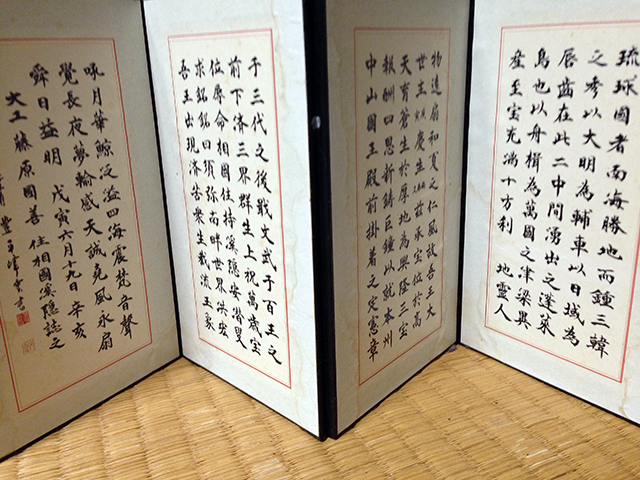 琉球國者南海勝地而鍾三韓
之秀以大明為輔車以日域為
唇齒在此二中間湧出之蓬萊
島也以舟楫為萬國之津梁異
產至宝充滿十方刹 地靈人
物遠扇和夏之仁風故吾王大
世主庚寅慶生尚泰久茲承宝位於高
天育蒼生於厚地為興隆三宝
報酬四恩新鋳巨鐘以就本州
中山國王殿前掛着之定憲章
于三代之後戢文武于百王之
前下済三界群生上祝萬歲宝
位辱命相國住持溪隠安潜叟
求銘銘曰須弥南畔世界洪宏
吾王出現済苦衆生截流玉象
吼月華鯨泛溢四海震梵音聲
覺長夜夢輸感天誠堯風永扇
舜日益明 戊寅六月十九日 辛亥
大工藤原國善 住相國溪隠誌之